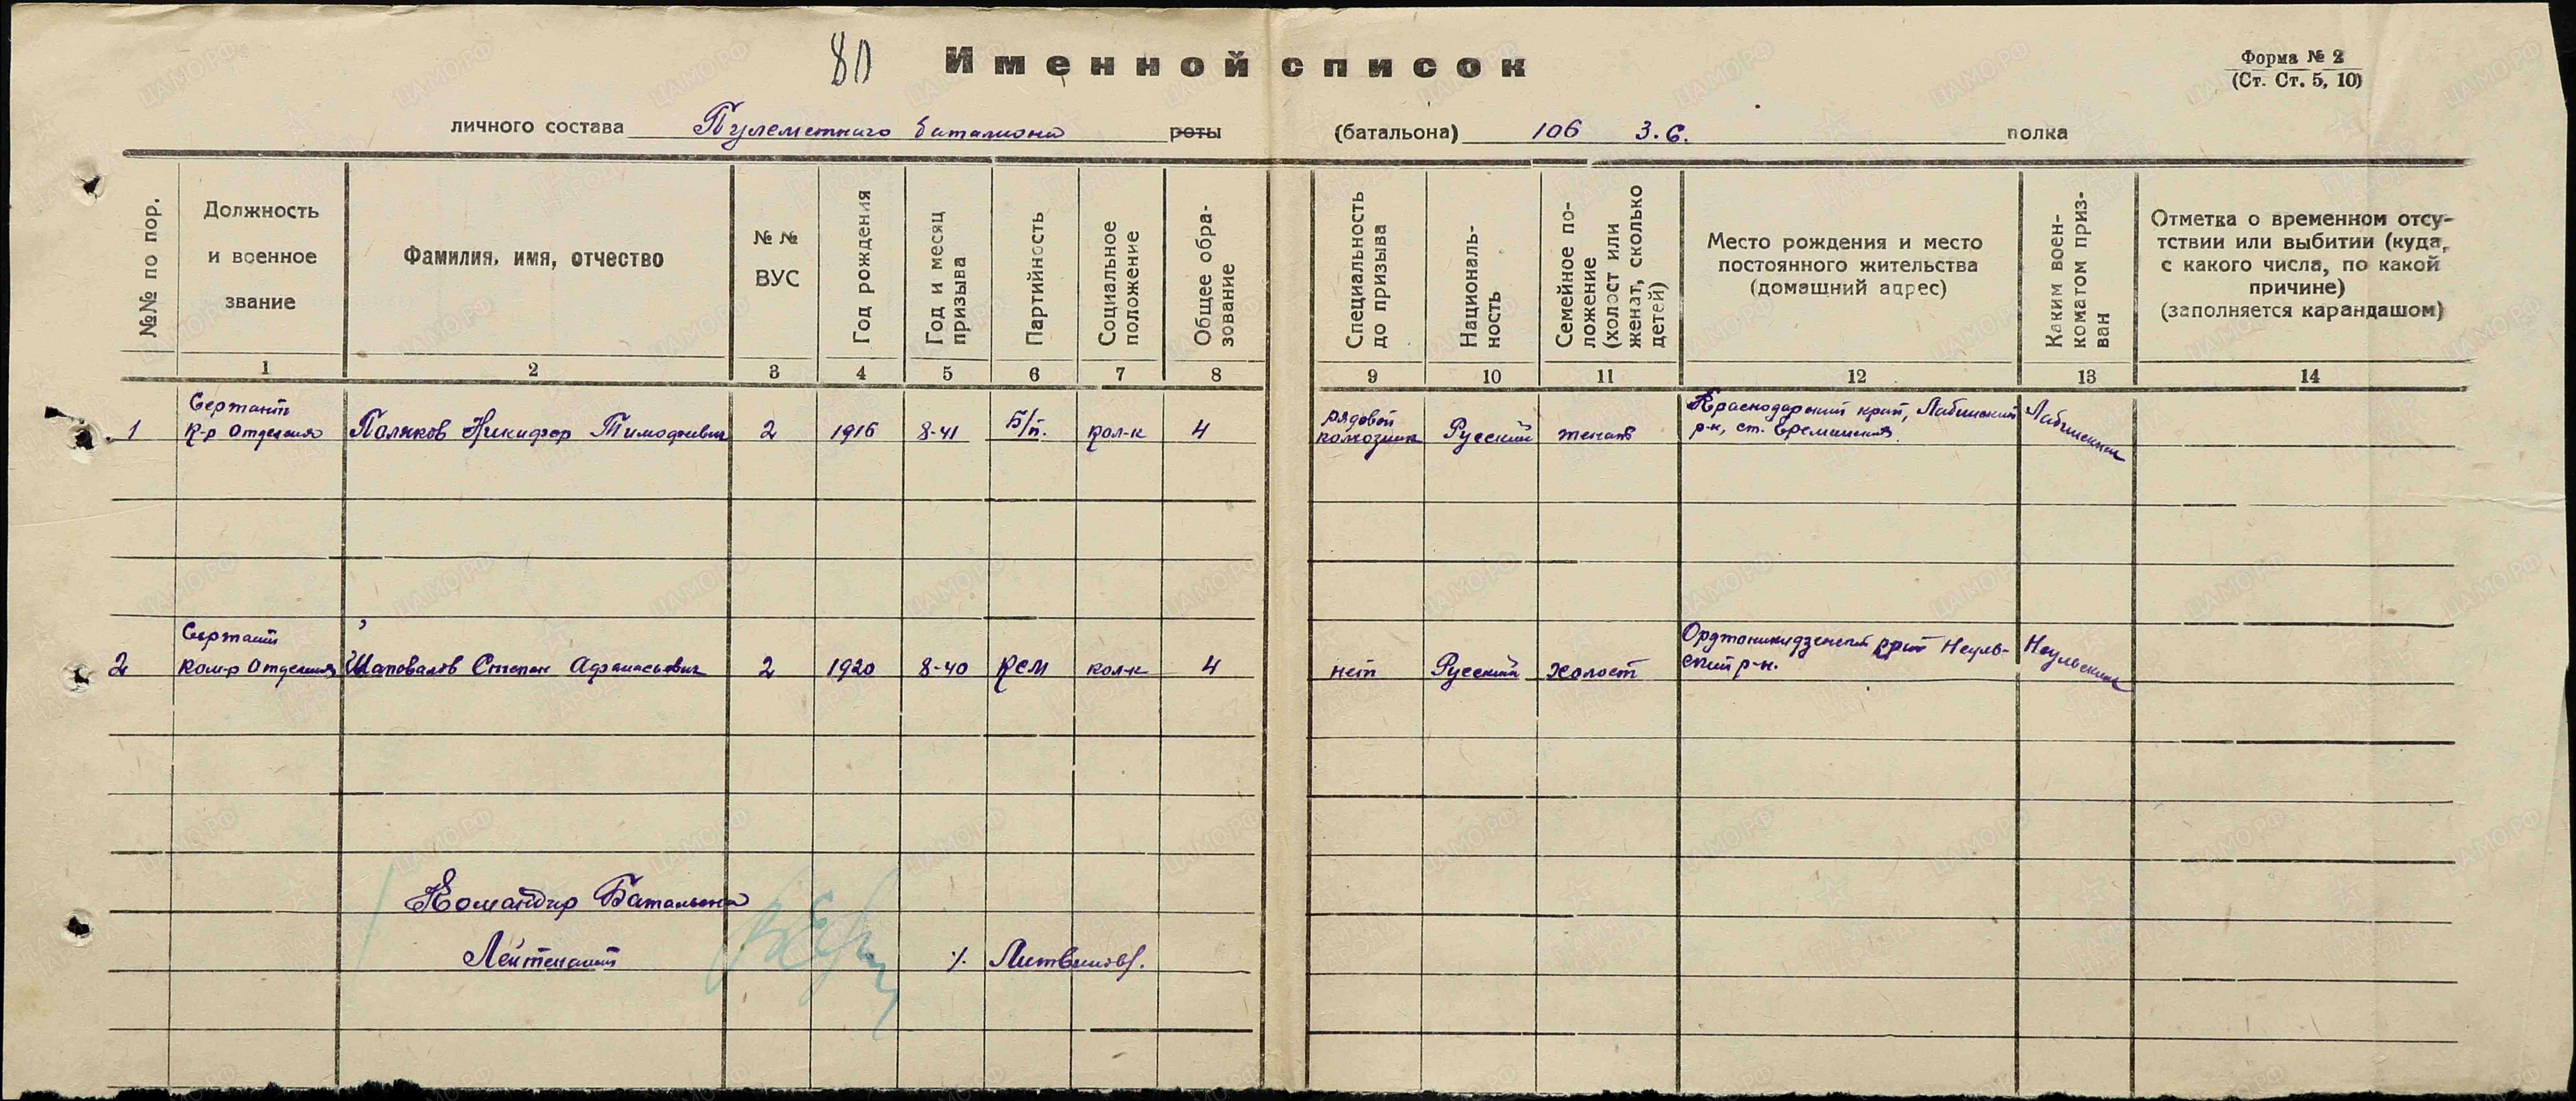 80
Именной список
Форма № 2
(Ст. Ст. 5, 10)
личного состава Пулеметного баталиона роты (батальона) 106 З.б. полка
№№ по пор.
Должность и военное звание
Фамилия, имя, отчество
№ № ВУС
Год рождения
Год и месяц призыва
Партийность
Социальное положение
Общее обра-
зование
Специальность до призыва
Националь-
ность
Семейное по-
ложение
(холост или
женат, сколько
детей)
Место рождения и место
постоянного жительства
(домашний адрес)
Каким воен-
коматом приз-
ван
Отметка о временном отсу-
тствии или выбитии (куда,
с какого числа, по какой
причине)
(заполняется карандашом)
1 2 3 4 5 6 7 8 9 10 11 12 13 14
1 Сержант
к-р Отделения Поляков Никифор Тимофеевич 2 1916 8-41 Б/п. кол-к 4 рядовой
колхозник Русский женат Краснодарский край, Лабинский
р-н, ст. Ереминская Лабинским
2 Сержант
ком-р Отделения Шаповалов Степан Афанасьевич 2 1920 8-40 КСМ кол-к 4 нет Русский холост Орджоникидзевский край Неуль-
ский р-н. Неульским
Командир Батальона
Лейтенант /. Литвинов/.
ЦАМО.РФ